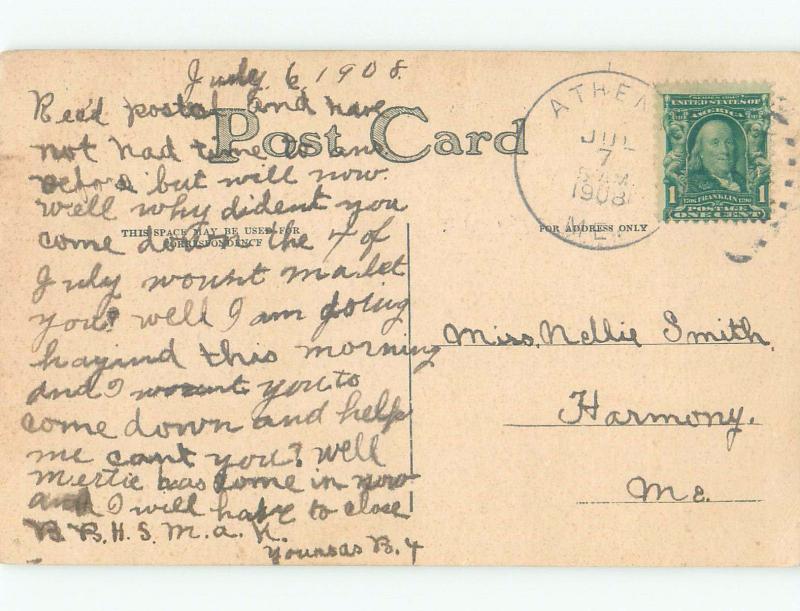 July, 6, 1908.
Rec'd postal and have
Post Card
not had time to ans
before but will now.
well why dident you
THIS SPACE MAY BE USED FOR
CORRESPONDENCE
come down the 4 of
July wount ma let
you? well I am going
hayind this morning
and I want you to
come down and help
me cant you? Well
mertie has come in now
and I will have to close!
B.B.H.S.M.a.K.
FOR ADDRESS ONLY
ATHEN
JUL
7
1908
ME.
SERIES 1902
UNITED STATES OF
AMERICA
1 FRANKLIN 1
POSTAGE
ONE CENT
Miss, Nellie Smith,
Harmony,
Me.